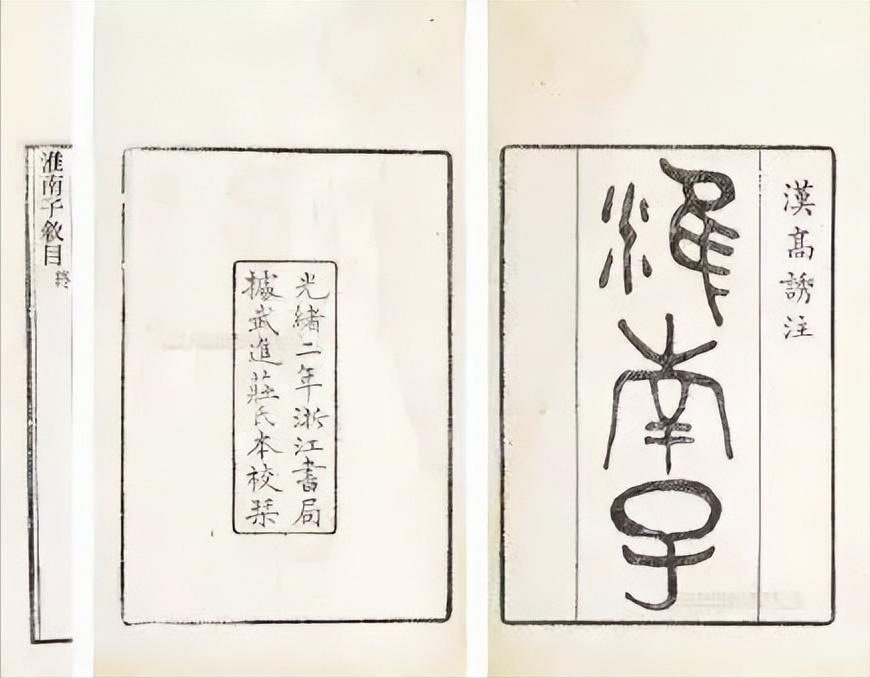 漢高誘注
淮南子
光緒二年浙江書局
據武進莊氏本校栞
淮南子敘目
終